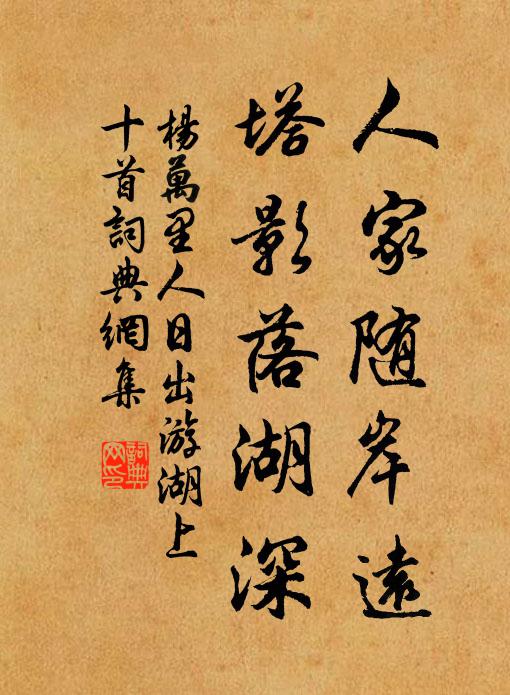 人家随岸遠
塔影落湖深
楊萬里人日出游湖上
十首詞典網集
詞典网印